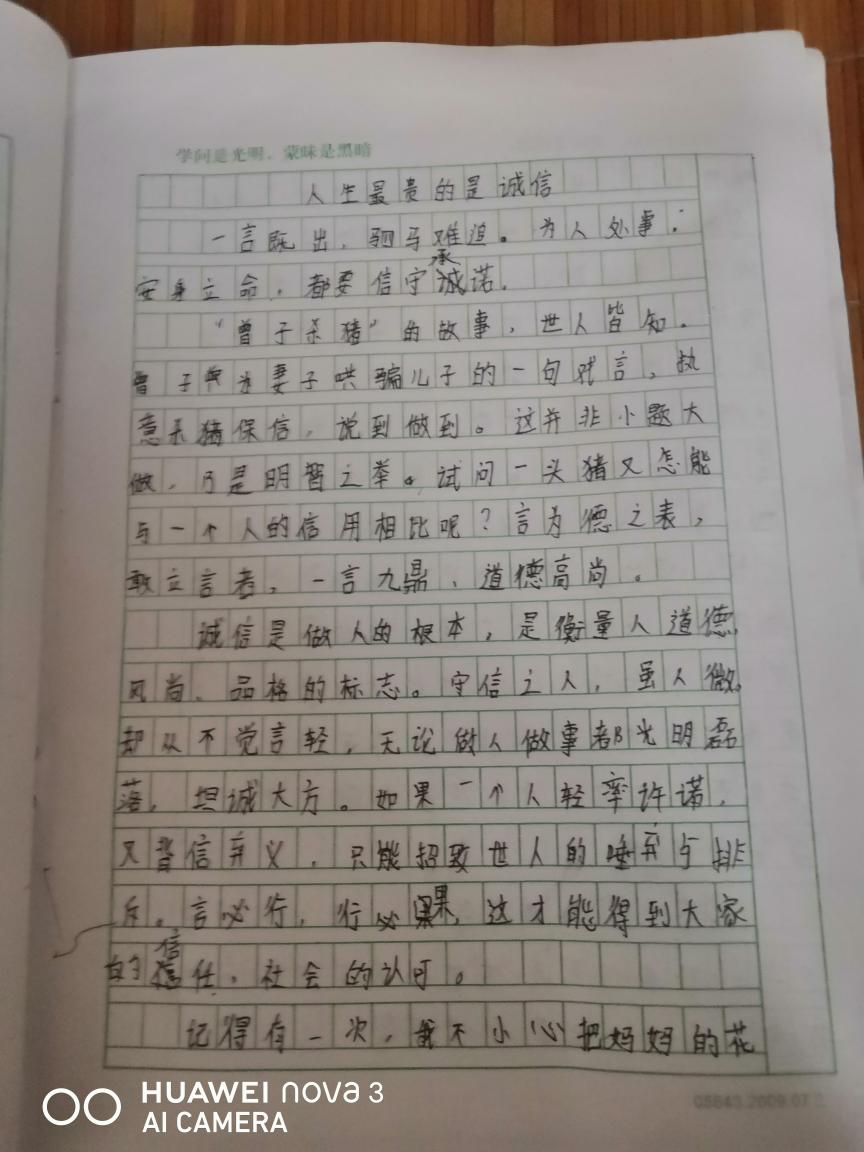 学问是光明，蒙昧是黑暗
人生最贵的是诚信
一言既出，驷马难追。为人处事，
安身立命，都要信守承诺。
“曾子杀猪”的故事，世人皆知。
曾子为妻子哄骗儿子的一句戏言，执
意杀猪保信，说到做到。这并非小题大
做，乃是明智之举。试问一头猪又怎能
与一个人的信用相比呢？言为德之表，
敢立言者，一言九鼎、道德高尚。
诚信是做人的根本，是衡量人道德、
风尚、品格的标志。守信之人，虽人微，
却从不觉言轻，无论做人做事都光明磊
落，坦诚大方。如果一个人轻率许诺，
又背信弃义，只能招致世人的唾弃与排
斥。言必行，行必果，这才能得到大家
的信任，社会的认可。
记得有一次，我不小心把妈妈的花
HUAWEI nova 3
AI CAMERA
05643.2009.07